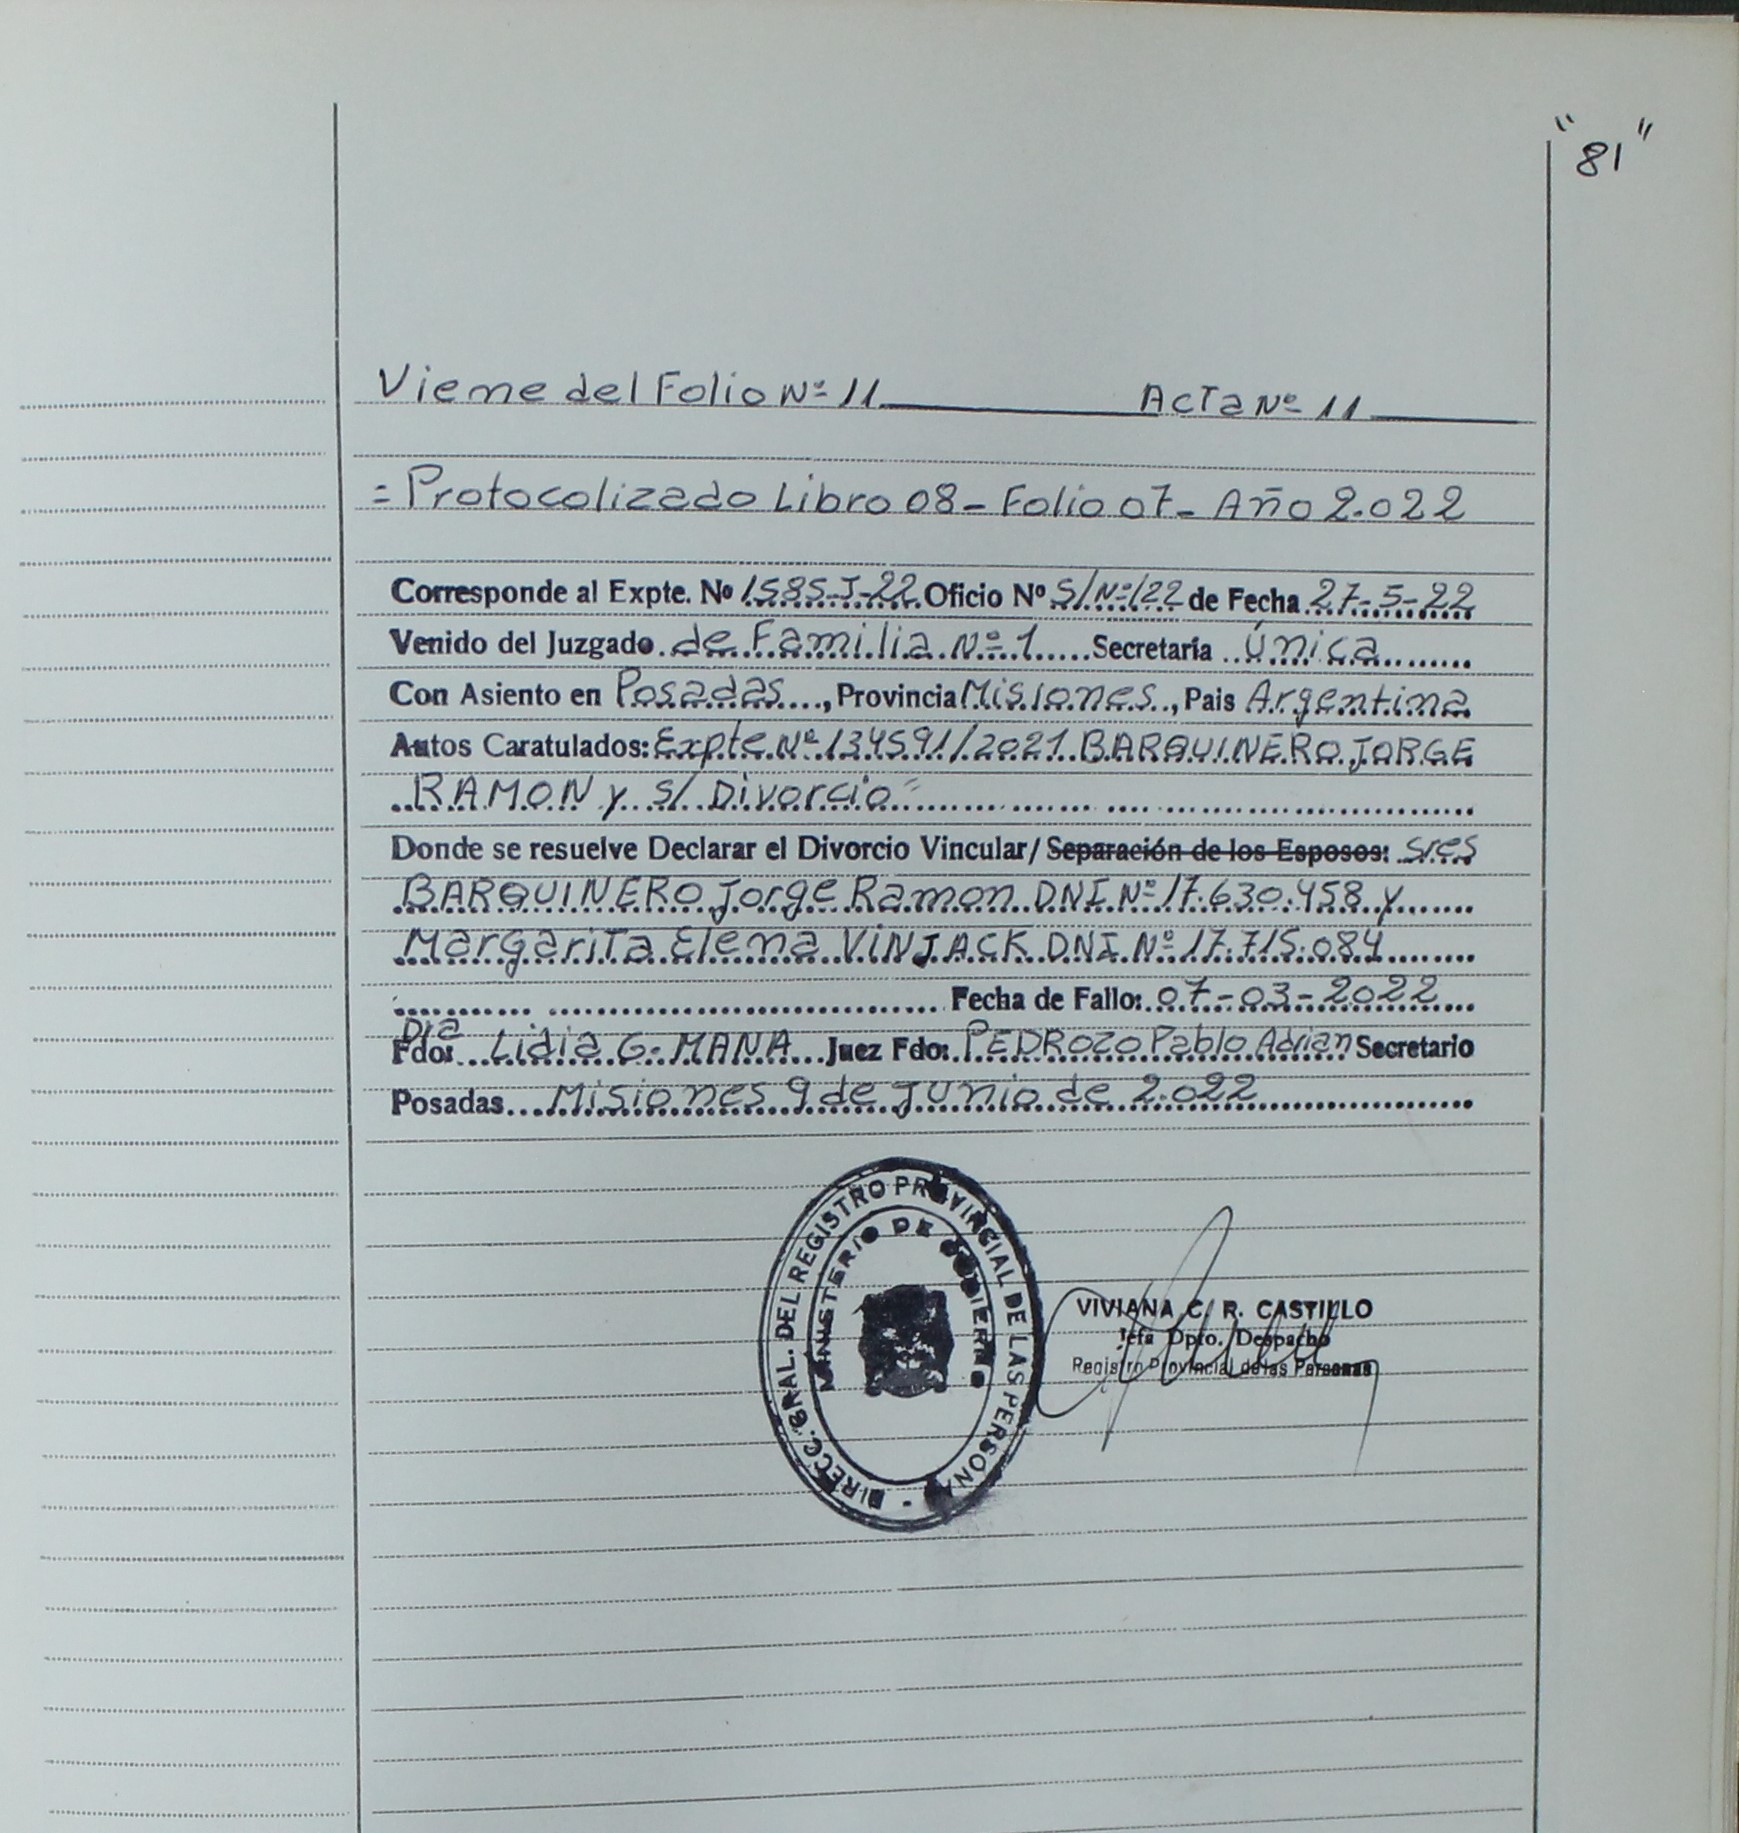 "81"
Viene del Folio Nº 11 Acta Nº 11
= Protocolizado Libro 08 - Folio 07 - Año 2.022
Corresponde al Expte. Nº 1585-J-22 Oficio Nº S/Nº/22 de Fecha 27-5-22
Venido del Juzgado de Familia Nº 1 Secretaría única
Con Asiento en Posadas, Provincia Misiones, Pais Argentina
Autos Caratulados: Expte Nº 134591/2021 BARQUINERO JORGE
RAMON y s/ Divorcio"
Donde se resuelve Declarar el Divorcio Vincular/ Separación de los Esposos: sres
BARQUINERO Jorge Ramon DNI Nº 17.630.458 y
Margarita Elena VINJACK DNI Nº 17.715.084
Fecha de Fallo: 07-03-2022
Dra
Fdo: Lidia G. MANA Juez Fdo: PEDROZO Pablo Adrian Secretario
Posadas Misiones 9 de Junio de 2.022
DIRECC. GRAL. DEL REGISTRO PROVINCIAL DE LAS PERSONAS
MINISTERIO DE GOBIERNO
VIVIANA C. R. CASTILLO
Jefa Dpto. Despacho
Registro Provincial de las Personas